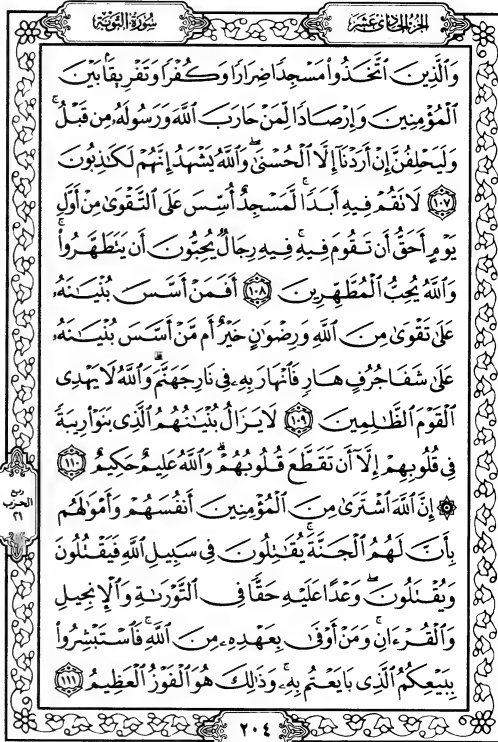 الجزء الحادي عشر
سورة التوبة
وَٱلَّذِينَ ٱتَّخَذُواْ مَسْجِدًا ضِرَارًا وَكُفْرًا وَتَفْرِيقًۢا بَيْنَ
ٱلْمُؤْمِنِينَ وَإِرْصَادًا لِّمَنْ حَارَبَ ٱللَّهَ وَرَسُولَهُۥ مِن قَبْلُۚ
وَلَيَحْلِفُنَّ إِنْ أَرَدْنَآ إِلَّا ٱلْحُسْنَىٰۖ وَٱللَّهُ يَشْهَدُ إِنَّهُمْ لَكَٰذِبُونَ
١٠٧ لَا تَقُمْ فِيهِ أَبَدًاۚ لَّمَسْجِدٌ أُسِّسَ عَلَى ٱلتَّقْوَىٰ مِنْ أَوَّلِ
يَوْمٍ أَحَقُّ أَن تَقُومَ فِيهِۚ فِيهِ رِجَالٌ يُحِبُّونَ أَن يَتَطَهَّرُواْۚ
وَٱللَّهُ يُحِبُّ ٱلْمُطَّهِّرِينَ ١٠٨ أَفَمَنْ أَسَّسَ بُنْيَٰنَهُۥ
عَلَىٰ تَقْوَىٰ مِنَ ٱللَّهِ وَرِضْوَٰنٍ خَيْرٌ أَم مَّنْ أَسَّسَ بُنْيَٰنَهُۥ
عَلَىٰ شَفَا جُرُفٍ هَارٍ فَٱنْهَارَ بِهِۦ فِي نَارِ جَهَنَّمَۗ وَٱللَّهُ لَا يَهْدِي
ٱلْقَوْمَ ٱلظَّٰلِمِينَ ١٠٩ لَا يَزَالُ بُنْيَٰنُهُمُ ٱلَّذِي بَنَوْاْ رِيبَةً
فِي قُلُوبِهِمْ إِلَّآ أَن تَقَطَّعَ قُلُوبُهُمْۗ وَٱللَّهُ عَلِيمٌ حَكِيمٌ ١١٠
۞ إِنَّ ٱللَّهَ ٱشْتَرَىٰ مِنَ ٱلْمُؤْمِنِينَ أَنفُسَهُمْ وَأَمْوَٰلَهُم
بِأَنَّ لَهُمُ ٱلْجَنَّةَۚ يُقَٰتِلُونَ فِي سَبِيلِ ٱللَّهِ فَيَقْتُلُونَ
وَيُقْتَلُونَۖ وَعْدًا عَلَيْهِ حَقًّا فِي ٱلتَّوْرَىٰةِ وَٱلْإِنجِيلِ
وَٱلْقُرْءَانِۚ وَمَنْ أَوْفَىٰ بِعَهْدِهِۦ مِنَ ٱللَّهِۚ فَٱسْتَبْشِرُواْ
بِبَيْعِكُمُ ٱلَّذِي بَايَعْتُم بِهِۦۚ وَذَٰلِكَ هُوَ ٱلْفَوْزُ ٱلْعَظِيمُ ١١١
ربع
الحزب
٢١
٢٠٤